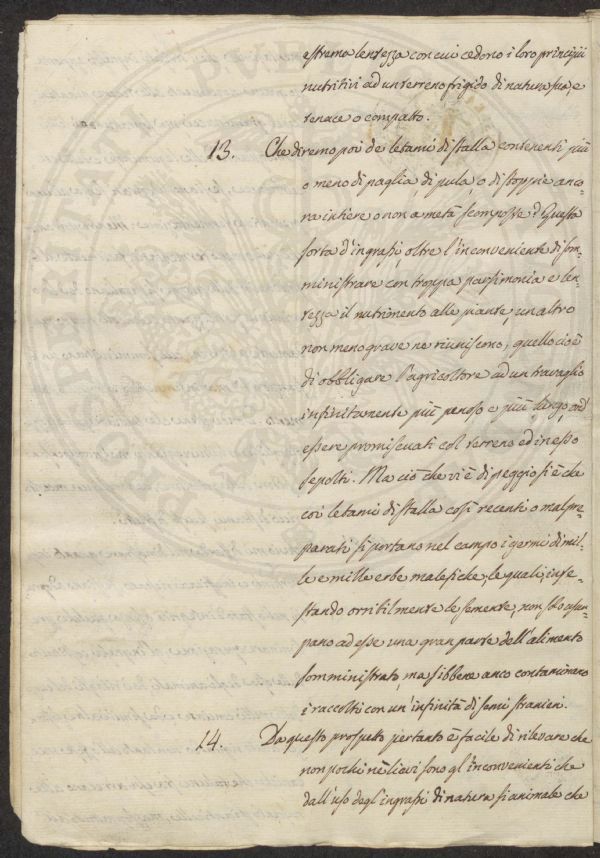 estrema lentezza con cui cedono i loro principii
nutritivi ad un terreno frigido di natura sua, e
tenace o compatto.
13. Che diremo poi de' letami di stalla contenenti più
o meno di paglia, di pula, o di stoppie anco-
ra intiere o non a metà scomposte? Questa
sorta d'ingrassi, oltre l'inconveniente di som-
ministrare con troppa parsimonia e len-
tezza il nutrimento alle piante, un altro
non meno grave ne riuniscono, quello cioè
di obbligare l'agricoltore ad un travaglio
infinitamente più penoso e più lungo, ond'
essere promiscuati col terreno ed in esso
sepolti. Ma ciò che vi è di peggio si è che
coi letami di stalla così recenti o mal pre-
parati si portano nel campo i germi di mil-
le e mille erbe malefiche, le quali, infe-
stando orribilmente le semente, non solo usur-
pano ad esse una gran parte dell'alimento
somministrato, ma sibbene anco contaminano
i raccolti con un'infinità di semi stranieri.
14. Da questo prospetto pertanto è facile di rilevare che
non pochi nè lievi sono gl'inconvenienti che
dall'uso degl'ingrassi di natura sì animale che